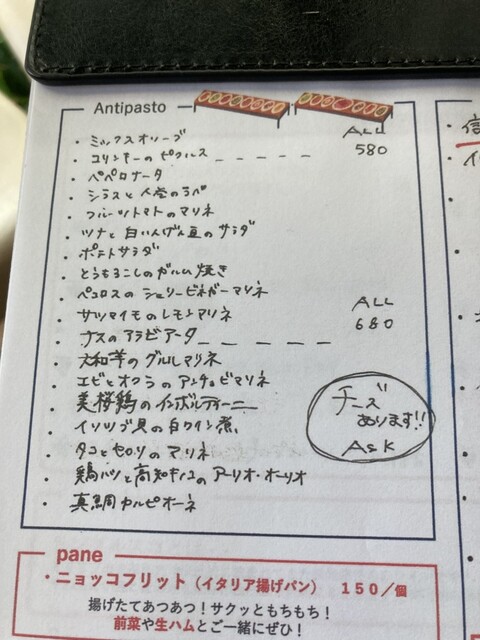 Antipasto
ALL
・ミックスオリーブ
・コリンキーのピクルス _ _ _ _ _ 580
・ペペロナータ
・シラスと人参のラペ
・フルーツトマトのマリネ
・ツナと白いんげん豆のサラダ
・ポテトサラダ
・とうもろこしのガルム焼き
・ペコロスのシェリービネガーマリネ
ALL
・サツマイモのレモンマリネ
680
・ナスのアラビアータ_ _ _ _ _
・大和芋のグリルマリネ
・エビとオクラのアンチョビマリネ
・美桜鶏のインボルティーニ
・イソツブ貝の白ワイン煮
・タコとセロリのマリネ
・鶏ハツと高知キノコのアーリオ・オーリオ
・真鯛カルピオーネ
チーズ
あります!!
ASK
pane
・ニョッコフリット（イタリア揚げパン） １５０／個
揚げたてあつあつ！サクッともちもち！
前菜や生ハムとご一緒にぜひ！